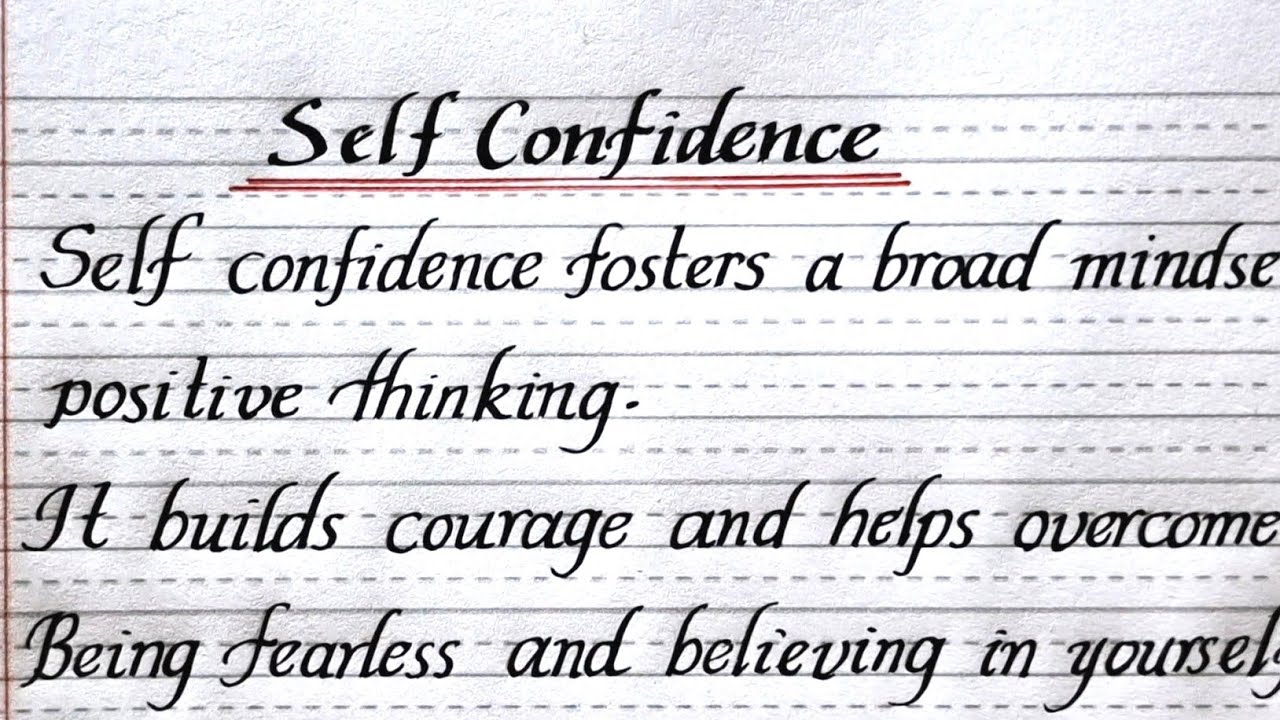 Self Confidence
Self confidence fosters a broad mindse
positive thinking.
It builds courage and helps overcome
Being fearless and believing in yourself